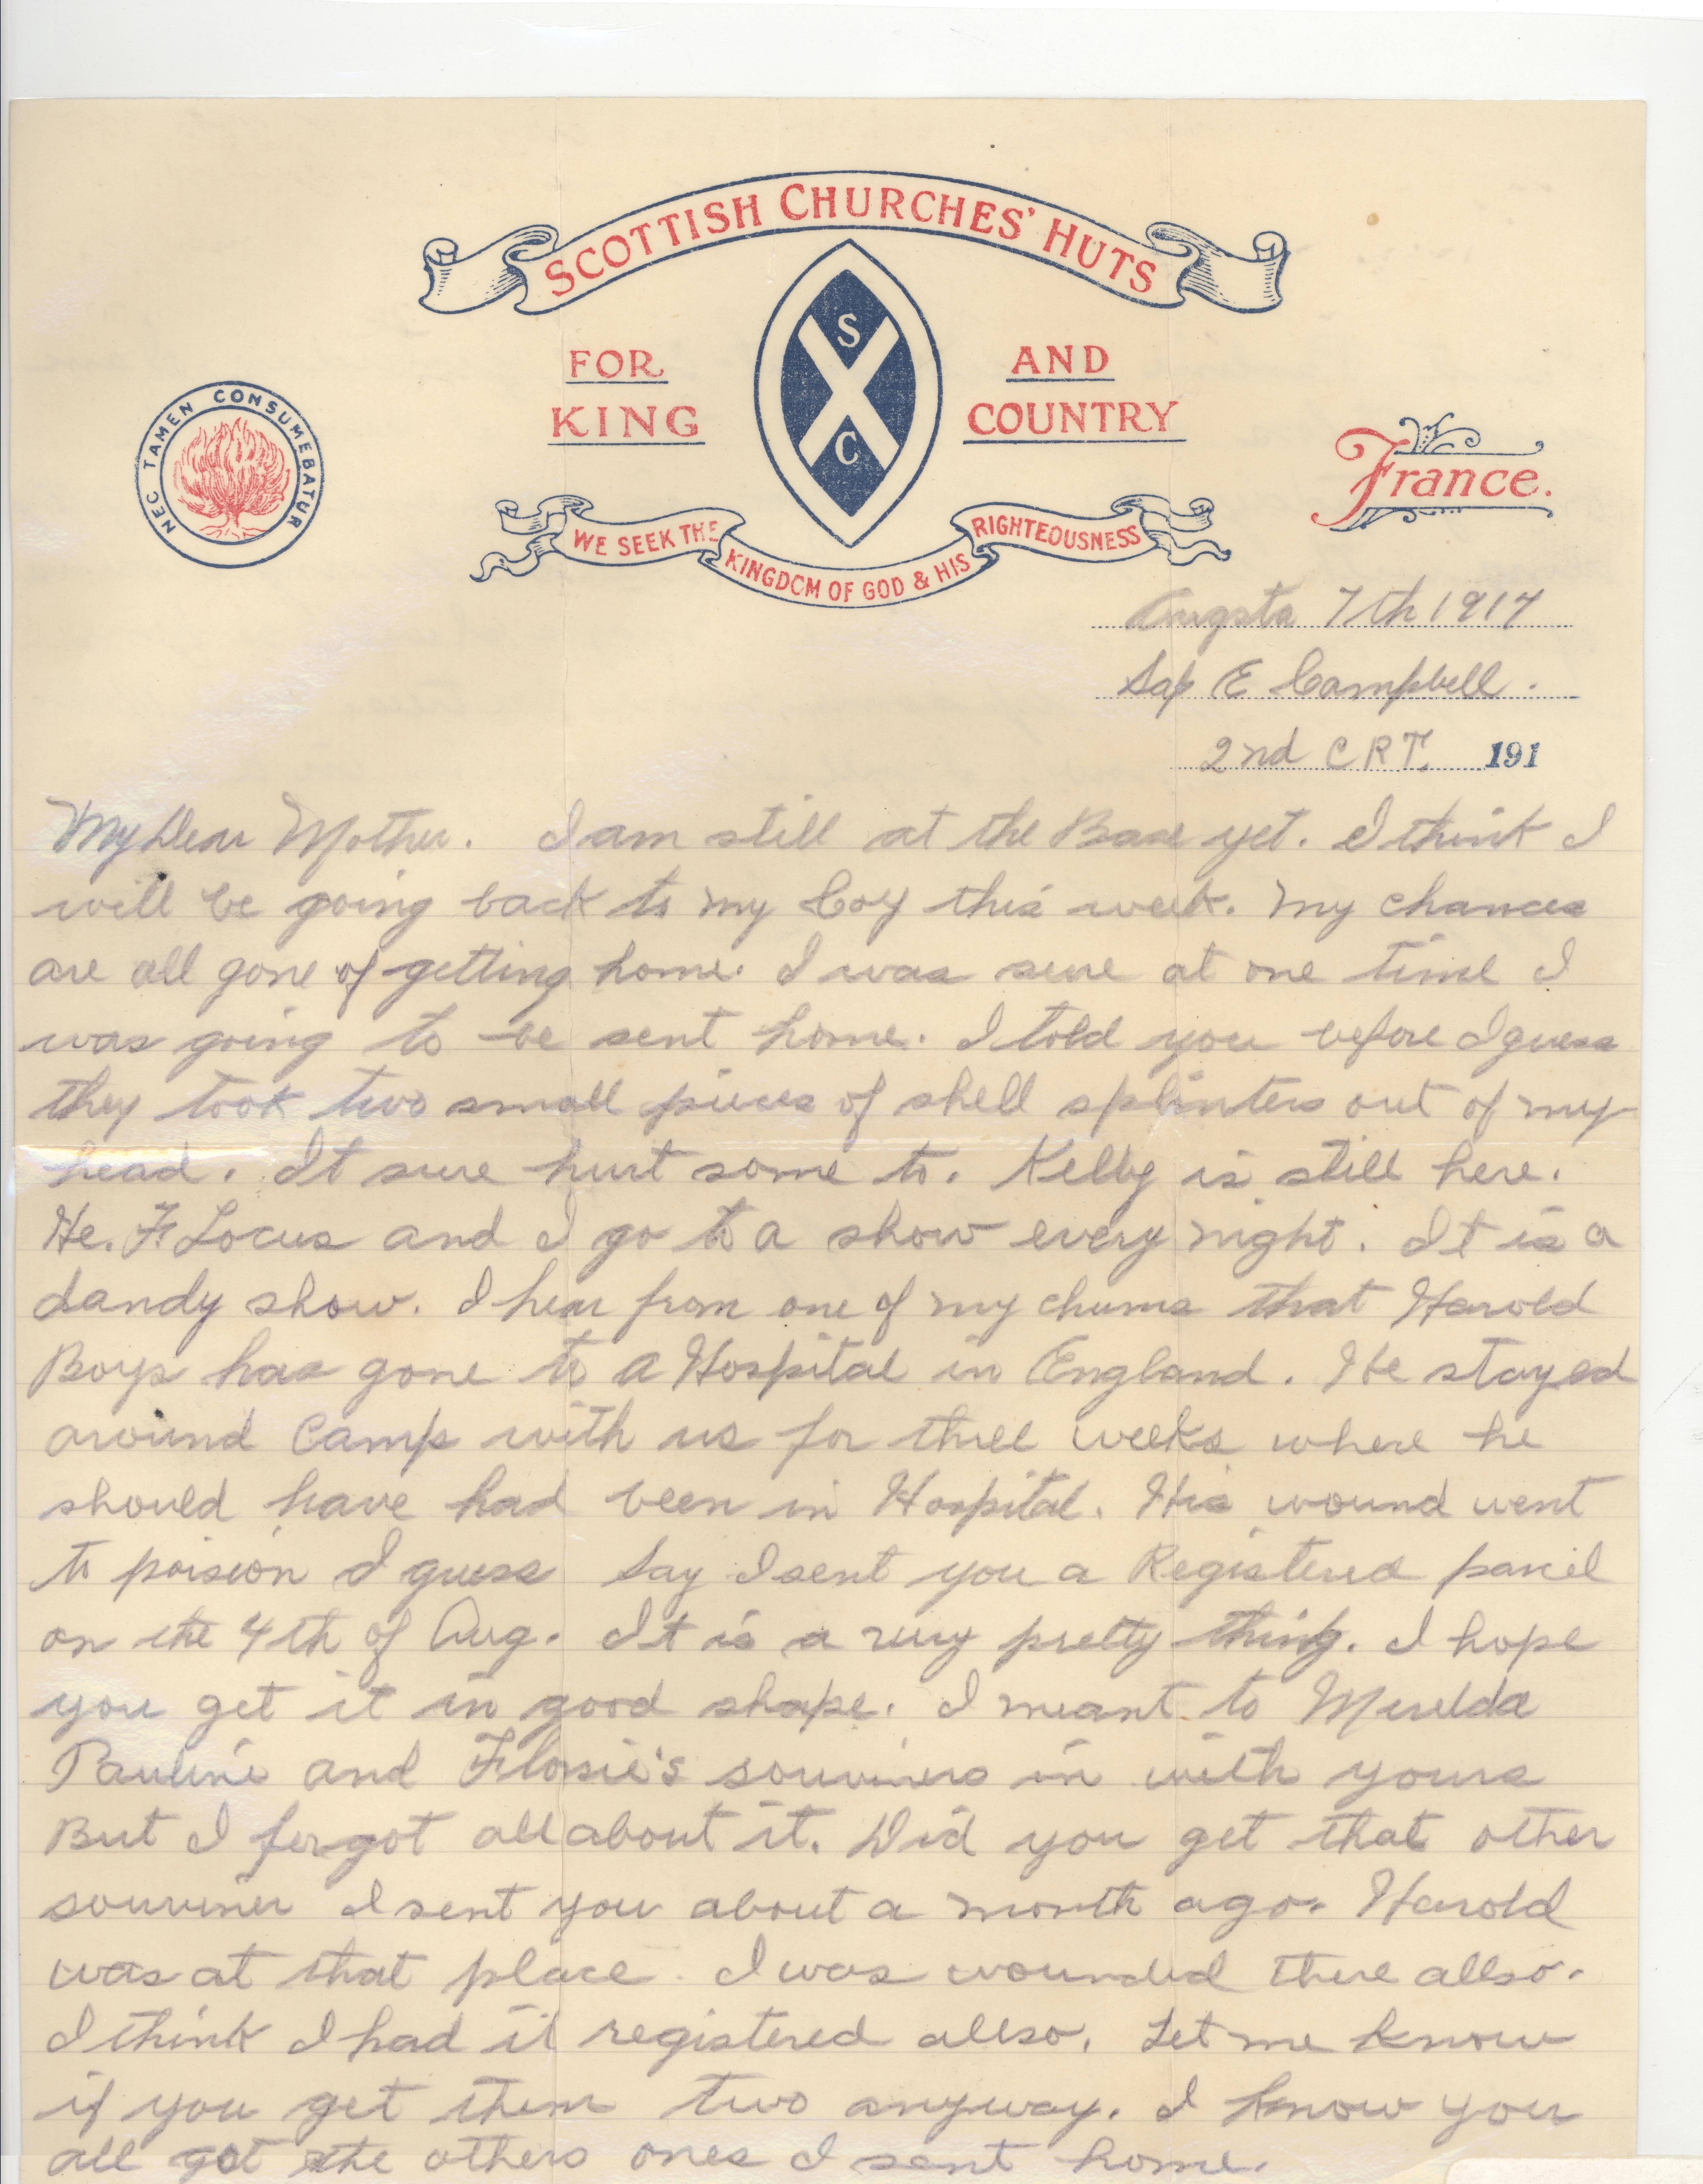 SCOTTISH CHURCHES' HUTS
FOR KING AND COUNTRY
S
C
NEC TAMEN CONSUMEBATUR
France.
WE SEEK THE KINGDOM OF GOD & HIS RIGHTEOUSNESS
Augsta 7th 1917
Sap E Campbell.
2nd C R T. 191
My Dear Mother. I am still at the Base yet. I think I
will be going back to my Coy this week. My chances
are all gone of getting home. I was sure at one time I
was going to be sent home. I told you before I guess
they took two small pieces of shell splinters out of my
head. It sure hurt some to. Kelly is still here.
He. F. Locus and I go to a show every night. It is a
dandy show. I hear from one of my chums that Harold
Boys has gone to a Hospital in England. He stayed
around Camp with us for three weeks where he
should have had been in Hospital. His wound went
to poision I guess Say I sent you a Registered parcel
on the 4th of Aug. It is a very pretty thing. I hope
you get it in good shape. I meant to Merelda
Pauline and Flossie's souviners in with yours
But I forgot all about it. Did you get that other
souviner I sent you about a month ago. Harold
was at that place. I was wounded there allso.
I think I had it registered allso. Let me know
if you get them two anyway. I know you
all got the others ones I sent home.